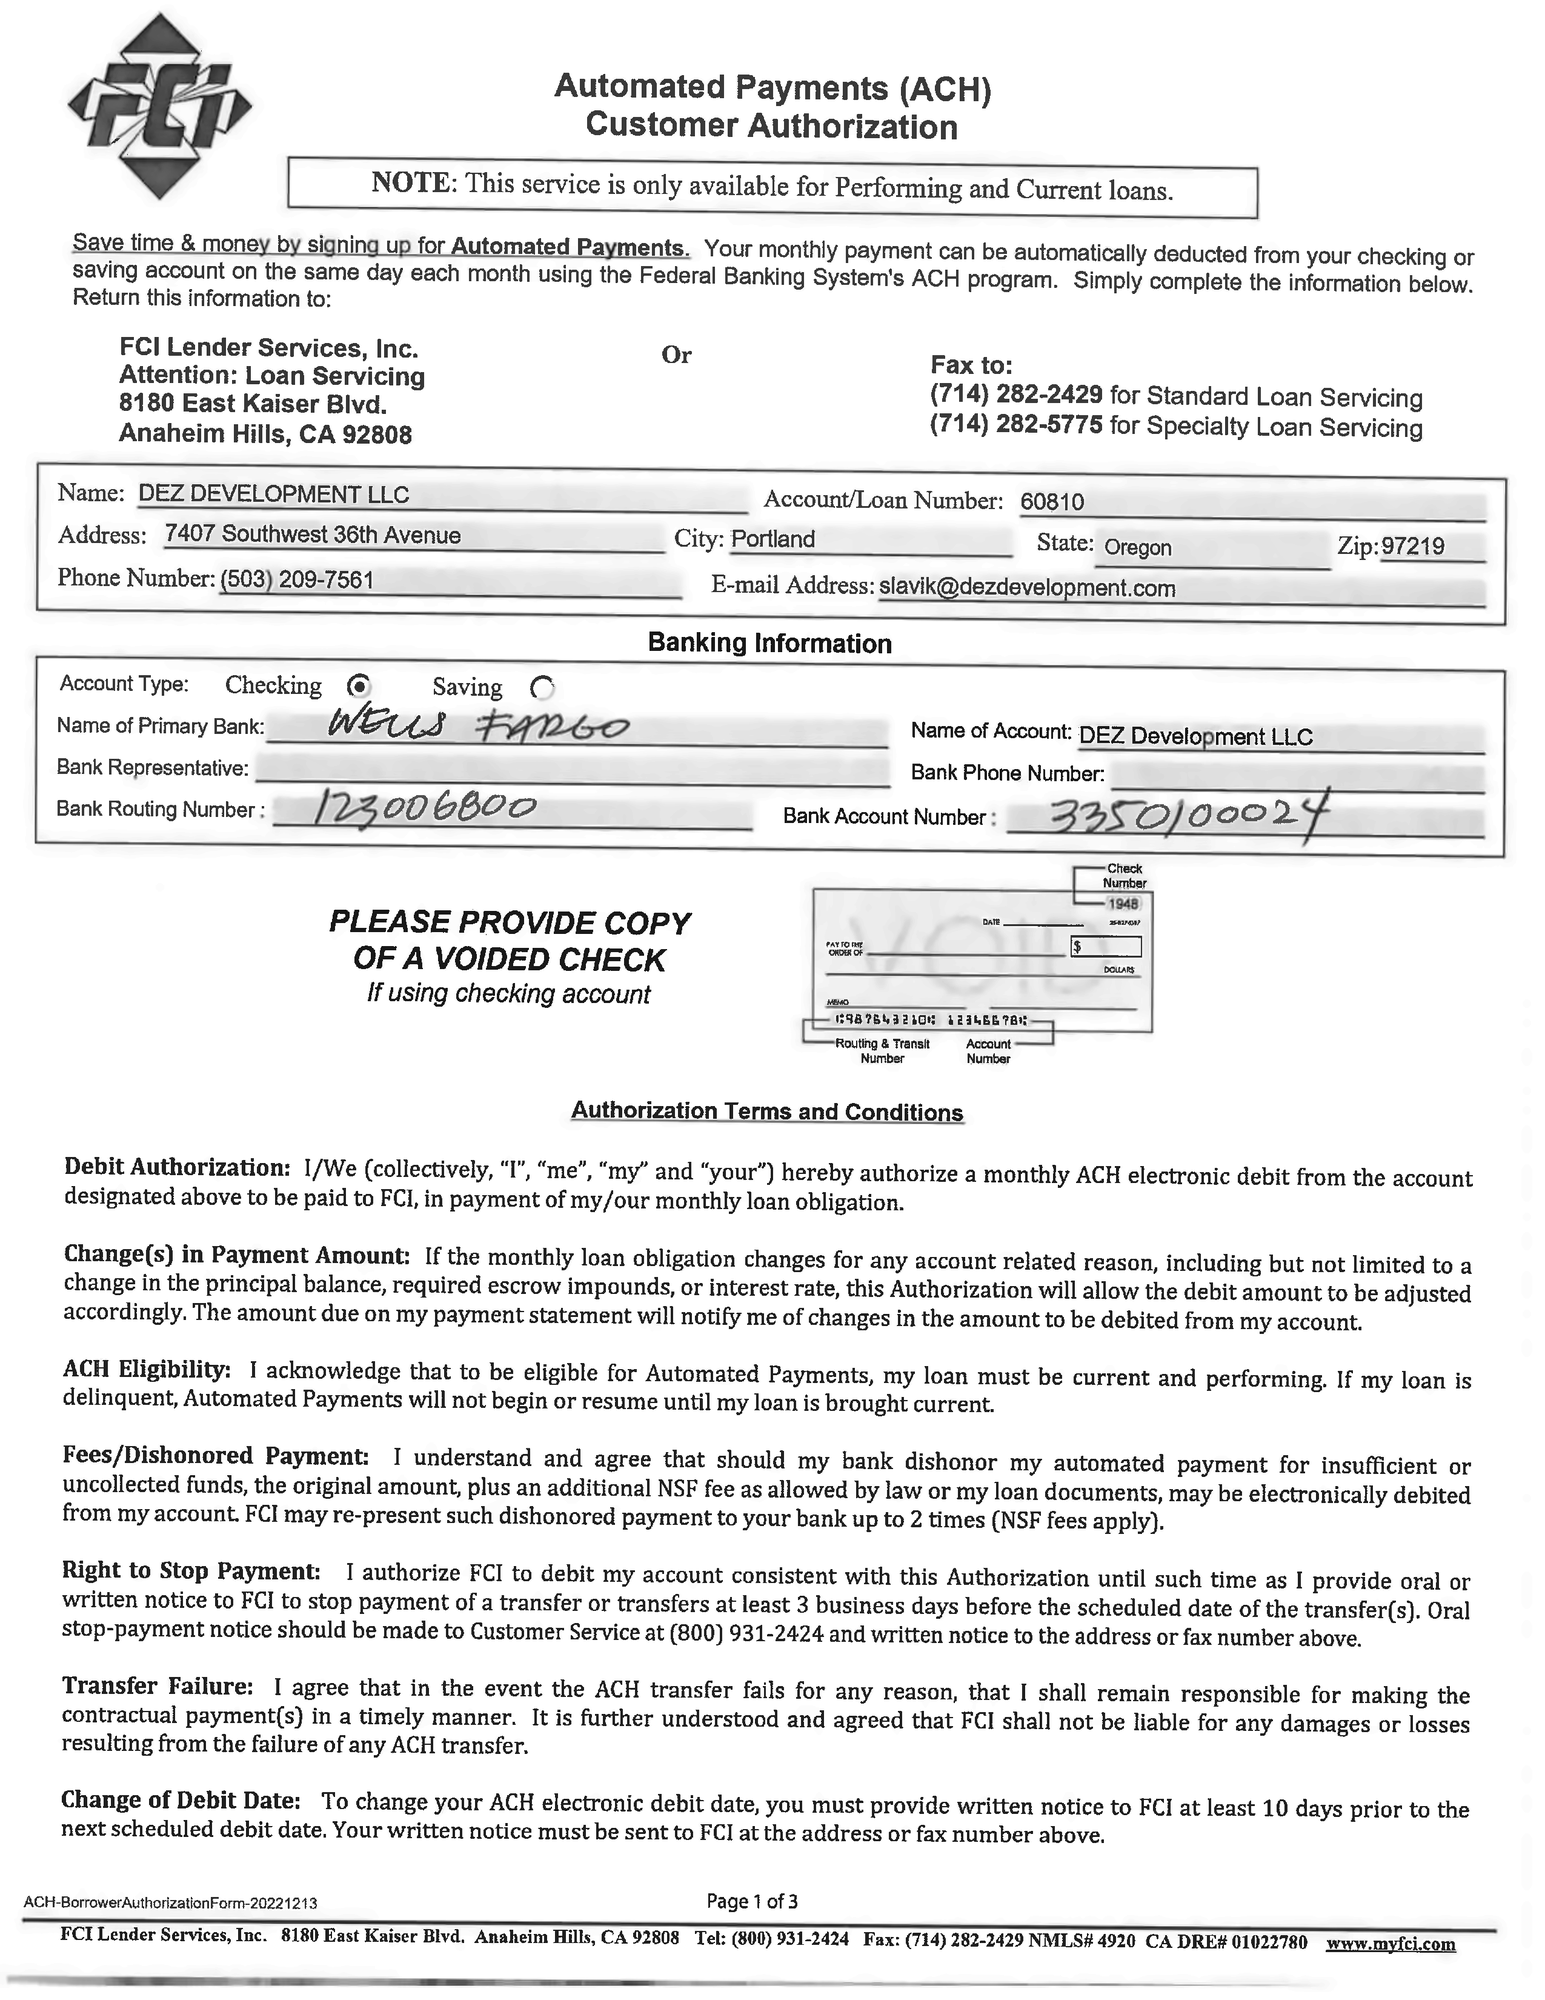 FCI
Automated Payments (ACH)
Customer Authorization
NOTE: This service is only available for Performing and Current loans.
Save time & money by signing up for Automated Payments. Your monthly payment can be automatically deducted from your checking or
saving account on the same day each month using the Federal Banking System's ACH program. Simply complete the information below.
Return this information to:
FCI Lender Services, Inc.
Attention: Loan Servicing
8180 East Kaiser Blvd.
Anaheim Hills, CA 92808
Or
Fax to:
(714) 282-2429 for Standard Loan Servicing
(714) 282-5775 for Specialty Loan Servicing
Name: DEZ DEVELOPMENT LLC Account/Loan Number: 60810
Address: 7407 Southwest 36th Avenue City: Portland State: Oregon Zip: 97219
Phone Number: (503) 209-7561 E-mail Address: slavik@dezdevelopment.com
Banking Information
Account Type: Checking Saving
Name of Primary Bank: WELLS FARGO Name of Account: DEZ Development LLC
Bank Representative: Bank Phone Number:
Bank Routing Number : 123006800 Bank Account Number : 3350100024
PLEASE PROVIDE COPY
OF A VOIDED CHECK
If using checking account
Check
Number
1948
DATE
VOID
PAY TO THE
ORDER OF
$
DOLLARS
MEMO
Routing & Transit
Number
Account
Number
Authorization Terms and Conditions
Debit Authorization: I/We (collectively, “I”, “me”, “my” and “your”) hereby authorize a monthly ACH electronic debit from the account
designated above to be paid to FCI, in payment of my/our monthly loan obligation.
Change(s) in Payment Amount: If the monthly loan obligation changes for any account related reason, including but not limited to a
change in the principal balance, required escrow impounds, or interest rate, this Authorization will allow the debit amount to be adjusted
accordingly. The amount due on my payment statement will notify me of changes in the amount to be debited from my account.
ACH Eligibility: I acknowledge that to be eligible for Automated Payments, my loan must be current and performing. If my loan is
delinquent, Automated Payments will not begin or resume until my loan is brought current.
Fees/Dishonored Payment: I understand and agree that should my bank dishonor my automated payment for insufficient or
uncollected funds, the original amount, plus an additional NSF fee as allowed by law or my loan documents, may be electronically debited
from my account. FCI may re-present such dishonored payment to your bank up to 2 times (NSF fees apply).
Right to Stop Payment: I authorize FCI to debit my account consistent with this Authorization until such time as I provide oral or
written notice to FCI to stop payment of a transfer or transfers at least 3 business days before the scheduled date of the transfer(s). Oral
stop-payment notice should be made to Customer Service at (800) 931-2424 and written notice to the address or fax number above.
Transfer Failure: I agree that in the event the ACH transfer fails for any reason, that I shall remain responsible for making the
contractual payment(s) in a timely manner. It is further understood and agreed that FCI shall not be liable for any damages or losses
resulting from the failure of any ACH transfer.
Change of Debit Date: To change your ACH electronic debit date, you must provide written notice to FCI at least 10 days prior to the
next scheduled debit date. Your written notice must be sent to FCI at the address or fax number above.
ACH-BorrowerAuthorizationForm-20221213 Page 1 of 3
FCI Lender Services, Inc. 8180 East Kaiser Blvd. Anaheim Hills, CA 92808 Tel: (800) 931-2424 Fax: (714) 282-2429 NMLS# 4920 CA DRE# 01022780 www.myfci.com